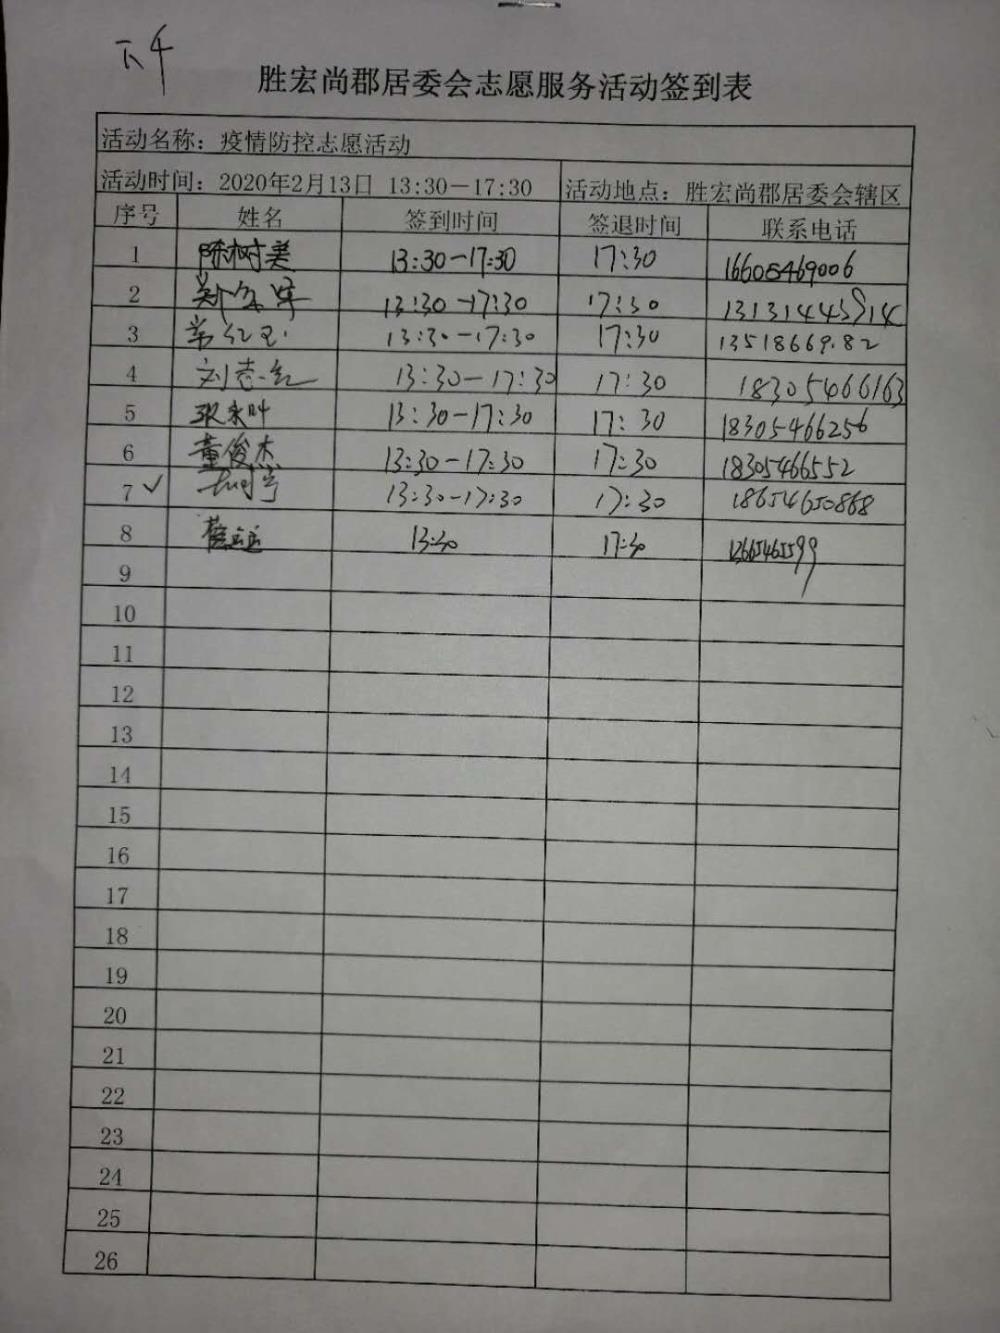 下午
胜宏尚郡居委会志愿服务活动签到表
活动名称：疫情防控志愿活动
活动时间：2020年2月13日 13:30－17:30 活动地点：胜宏尚郡居委会辖区
序号 姓名 签到时间 签退时间 联系电话
1 陈树美 13:30-17:30 17:30 16605469006
2 13:30-17:30 17:30
3 常红玉 13:30-17:30 17:30 13518669.82
4 刘志红 13:30-17:30 17:30 18305466163
5 张永叶 13:30-17:30 17:30 18305466256
6 董俊杰 13:30-17:30 17:30 18305466552
7 ✓ 13:30-17:30 17:30 18654650868
8 13:30 17:30
9
10
11
12
13
14
15
16
17
18
19
20
21
22
23
24
25
26